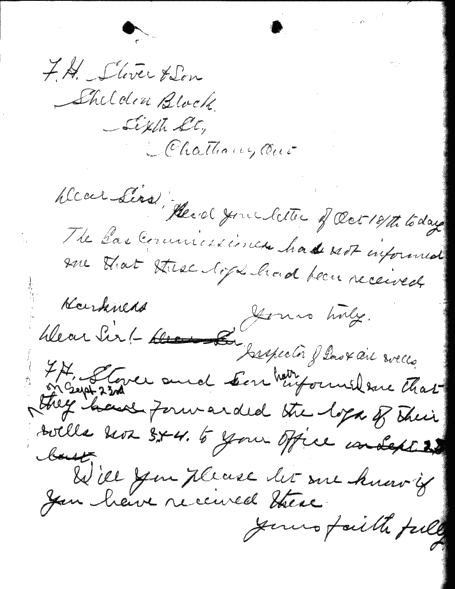 F. H. Stover & Son
Sheldon Block.
Sixth St,
Chatham, Ont
Dear Sirs,
Recd your letter of Oct 18/th today
The Gas Commissioner has not informed
me that these logs had been received
Harkness Yours truly.
Dear Sir! -
Inspector of Gas & Oil wells.
F.H. Stover and Son have informed me that
on Sept 23rd
they have forwarded the logs of their
wells nos 3 & 4. to your office in Sept 23
last
Will you please let me know if
you have received these
Yours faithfully